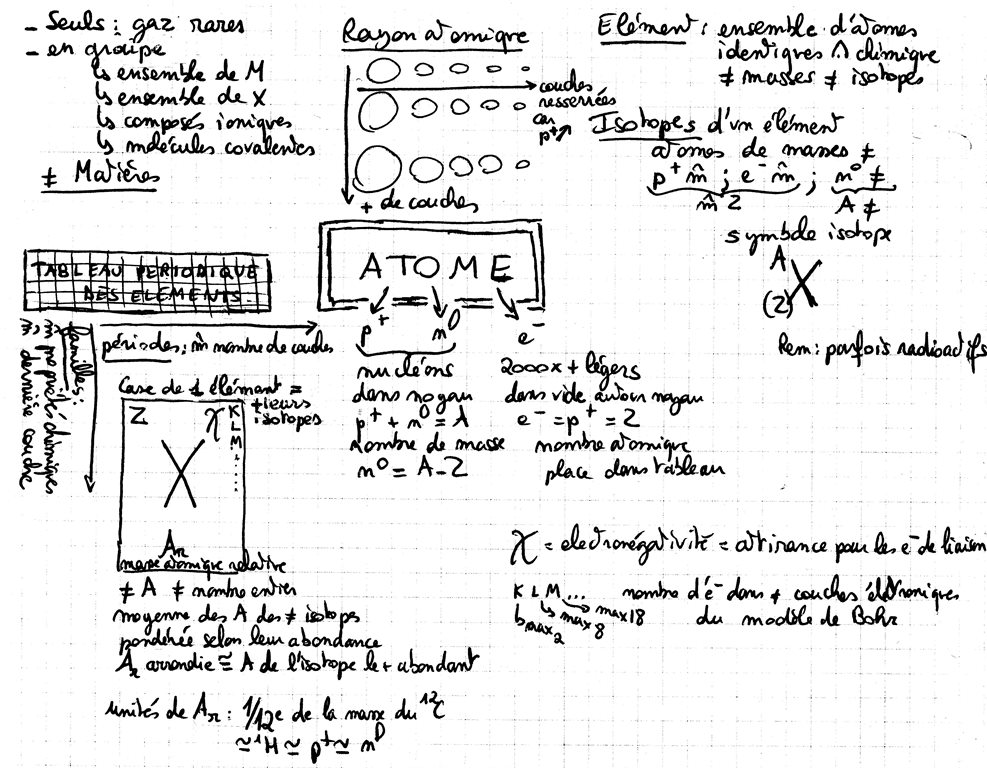 - Seuls : gaz rares
- en groupe
↳ ensemble de M
↳ ensemble de X
↳ composés ioniques
↳ molécules covalentes
≠ Matières
Rayon atomique
couches
resserrées
car
p⁺↗
+ de couches
Elément : ensemble d'atomes
identiques chimique
≠ masses ≠ isotopes
Isotopes d'un élément
atomes de masses ≠
p⁺ m̂ ; e⁻ m̂ ; n⁰ ≠
m̂ Z A ≠
symbole isotope
A
X
(Z)
Rem : parfois radioactifs
TABLEAU PERIODIQUE
DES ELEMENTS
périodes : m̂ nombre de couches
familles :
m̂ propriétés chimiques
m̂ dernière couche
Case de 1 élément =
+ieurs
isotopes
Z χ K
L
M
X
Ar
masse atomique relative
≠ A ≠ nombre entier
moyenne des A des ≠ isotopes
pondérée selon leur abondance
Ar arrondie ≅ A de l'isotope le + abondant
unités de Ar : 1/12e de la masse du ¹²C
≃ ¹H ≃ p⁺ ≃ n⁰
ATOME
p⁺ n⁰ e⁻
nucléons
dans noyau
p⁺ + n⁰ = A
Nombre de masse
n⁰ = A - Z
2000x + légers
dans vide autour noyau
e⁻ = p⁺ = Z
nombre atomique
place dans tableau
χ = électronégativité = attirance pour les e⁻ de liaison
K L M... nombre d'e⁻ dans ≠ couches électroniques
du modèle de Bohr
↳ max 2
↳ max 8
→ max 18